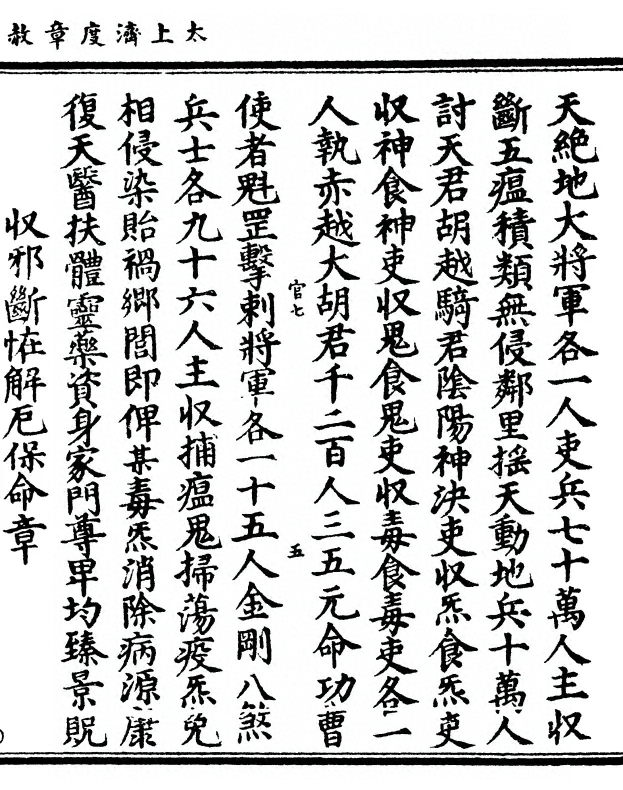 太上濟度章赦
天絕地大將軍各一人吏兵七十萬人主収
斷五瘟積類無侵鄰里搖天動地兵十萬人
討天君胡越騎君陰陽神決吏収炁食炁吏
収神食神吏収鬼食鬼吏収毒食毒吏各一
人執赤越大胡君千二百人三五元命功曹
官七
五
使者魁罡擊剌將軍各一十五人金剛八煞
兵士各九十六人主収捕瘟鬼掃蕩疫炁兊
相侵染貽禍鄉閭即俾某毒炁消除病源康
復天醫扶體靈藥資身家門尊卑均臻景貺
収邪斷恠解厄保命章